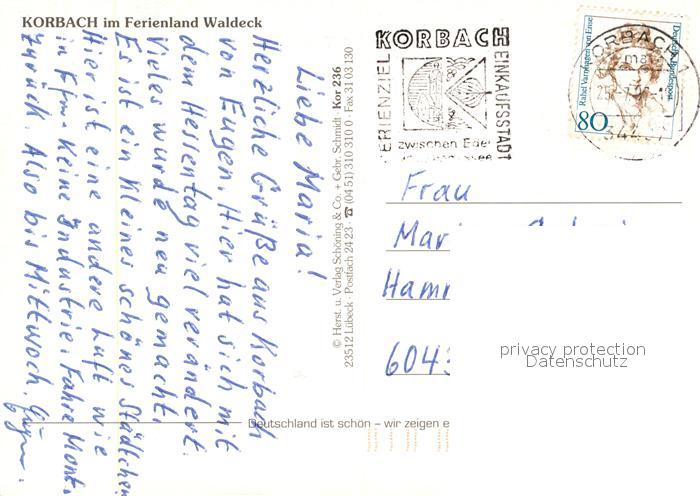 KORBACH im Ferienland Waldeck
Liebe Maria!
Herzliche Grüße aus Korbach
von Eugen. Hier hat sich mit
dem Hessentag viel verändert.
Vieles wurde neu gemacht.
Es ist ein kleines schönes Städtchen
Hier ist eine andere Luft wie
in Ffm. Keine Industrie. Fahre Mont.
zurück. Also bis Mittwoch.
© Herst. u. Verlag Schöning & Co. + Gebr. Schmidt · Kor 236
23512 Lübeck · Postfach 24 23 · ☎ (04 51) 310 310 0 · Fax 31 03 130
KORBACH
FERIENZIEL
EINKAUFSSTADT
zwischen Eder
KORBACH 1
Rahel Varnhagen von Ense
Deutsche Bundespost
80
Frau
Mar
Hamr
604
privacy protection
Datenschutz
Deutschland ist schön – wir zeigen e